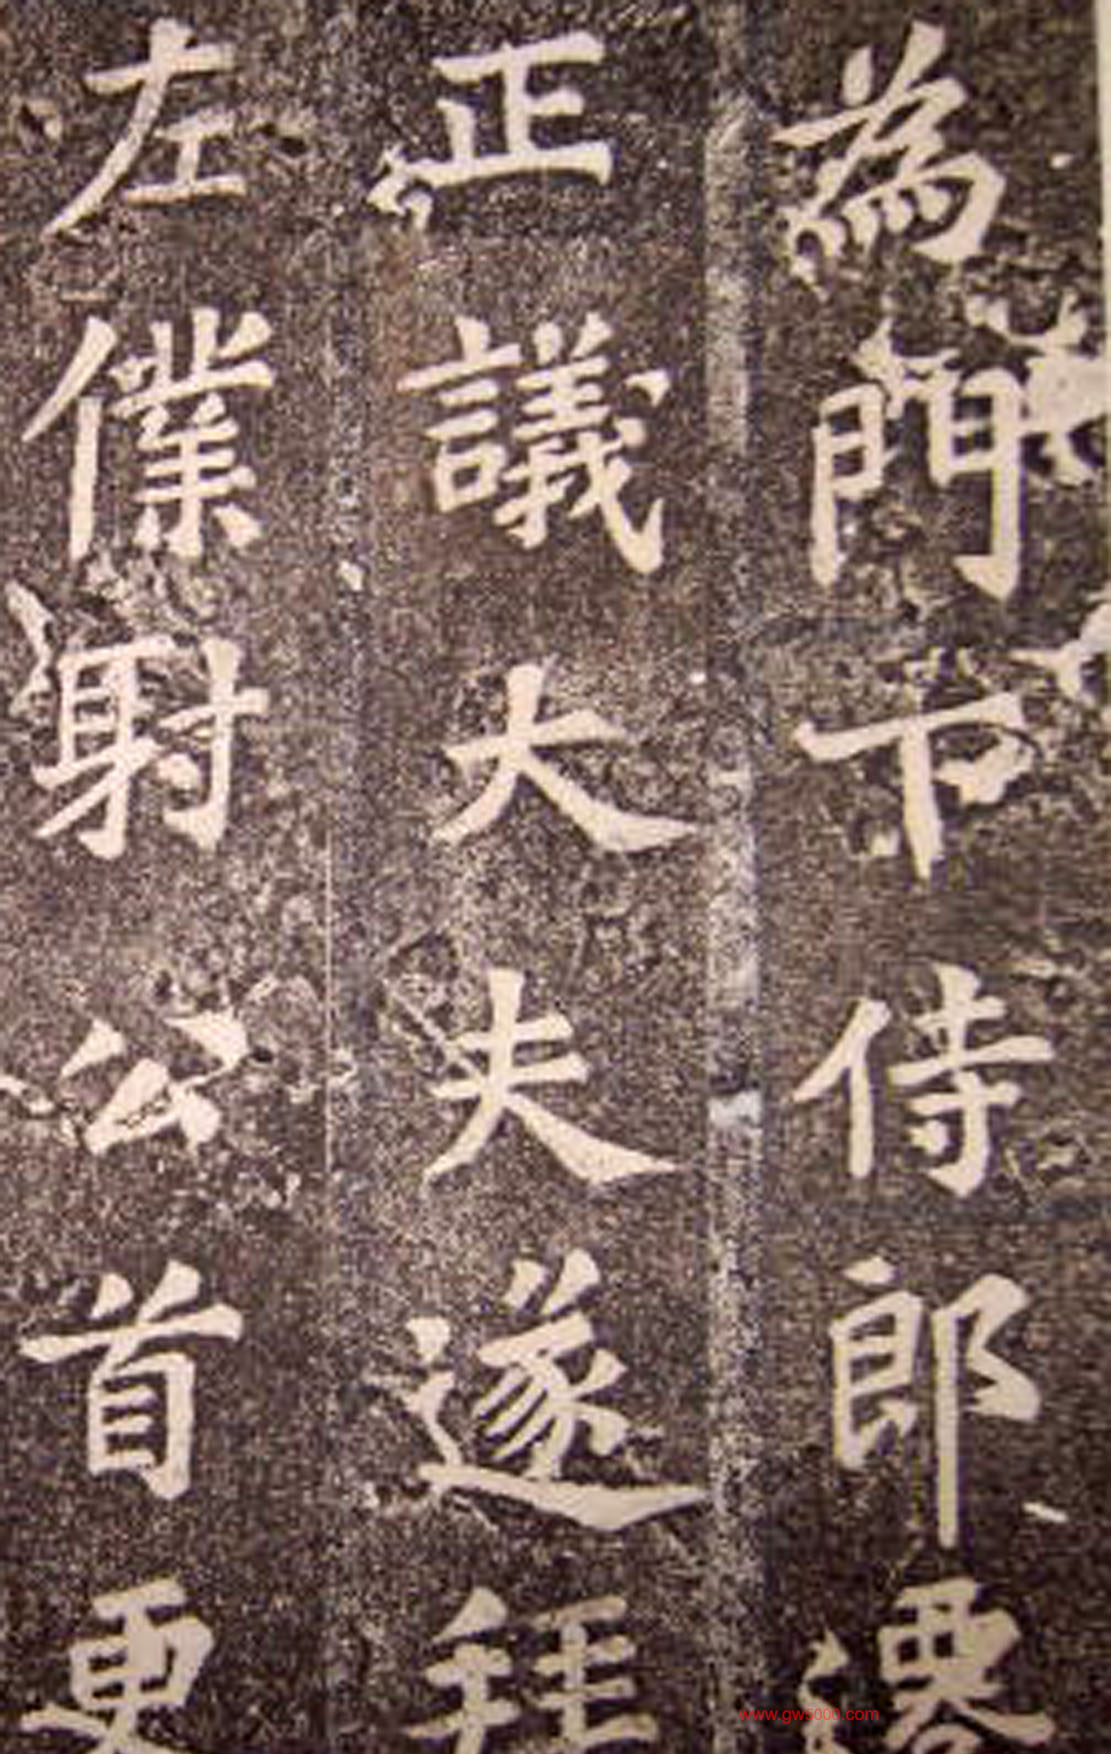 為門下侍郎遷
正議大夫遂拜
左僕射公首更
www.gw5000.com